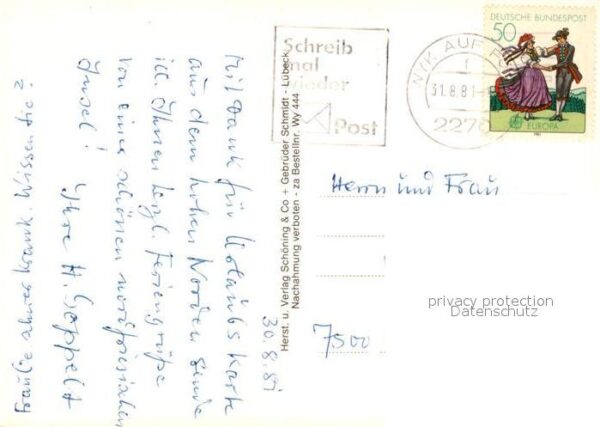 30.8.81
Mit Dank für Urlaubskarte
aus dem hohen Norden sende
ich Ihnen herzl. Feriengrüße
von einer schönen nordfriesischen
Insel!
Ihre H.
krank. Wissen Sie?
Herst. u. Verlag Schöning & Co + Gebrüder Schmidt - Lübeck
Nachahmung verboten - zu Bestellnr. Wy 444
Schreib
mal
wieder
Post
AUF
31.8.81
2278
DEUTSCHE BUNDESPOST
50
EUROPA
1981
Herrn und Frau
7500
privacy protection
Datenschutz